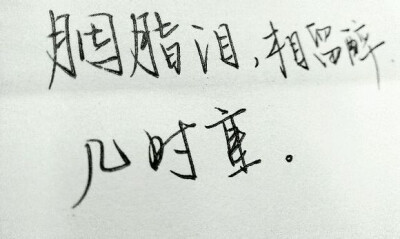 胭脂泪,相留醉
几时重。